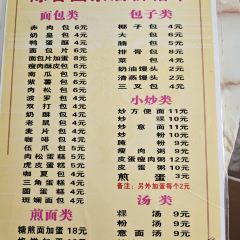 面包类
赤肉包 6元
奶皇包 4元
鸭蛋酥 4元
面包片 4元
面包片加蛋 6元
瘦肉酥皮包 6元
南瓜包 5元
紫薯包 5元
肉松包 5元
波罗包 4元
双打包 4元
奶酪包 5元
老鼠包 5元
麦包 4元
咖啡包 4元
伍爪包 5元
肉松蛋糕 5元
虎皮蛋糕 5元
咖夏包 4元
三角蛋糕 4元
圆蛋糕 4元
斑斓面包 4元
煎面类
糖煎面加蛋 18元
包子类
椰子包 4元
大包 7元
腩包 4元
排骨包 4元
奶油馒头 2元
清蒸馒头 2元
三叉包 4元
小炒类
炒方便面 11元
炒粿 10元
炒意面 11元
炒粉 10元
腌粉 9元
瘦肉粥 9元
皮蛋瘦肉粥 12元
皮蛋粥 10元
煎蛋 3元
备注：另外加蛋每个2元
汤类
粿汤 9元
粉汤 9元
意面汤 9元